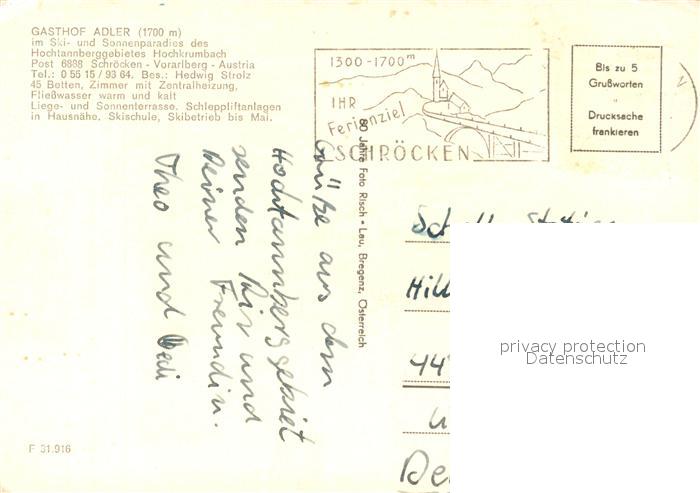 GASTHOF ADLER (1700 m)
im Ski- und Sonnenparadies des
Hochtannberggebietes Hochkrumbach
Post 6888 Schröcken - Vorarlberg - Austria
Tel.: 0 55 15 / 93 64. Bes.: Hedwig Strolz
45 Betten, Zimmer mit Zentralheizung,
Fließwasser warm und kalt
Liege- und Sonnenterrasse. Schleppliftanlagen
in Hausnähe. Skischule, Skibetrieb bis Mai.
1300-1700m
IHR
Ferienziel
SCHRÖCKEN
Bis zu 5
Grußworten
"
Drucksache
frankieren
80 Jahre Foto Risch-Lau, Bregenz, Österreich
Grüße aus dem
Hochtannberggebiet
senden Dir und
Deiner Freundin.
Theo und Dedi
Hill
44
De
privacy protection
Datenschutz
F 31.916